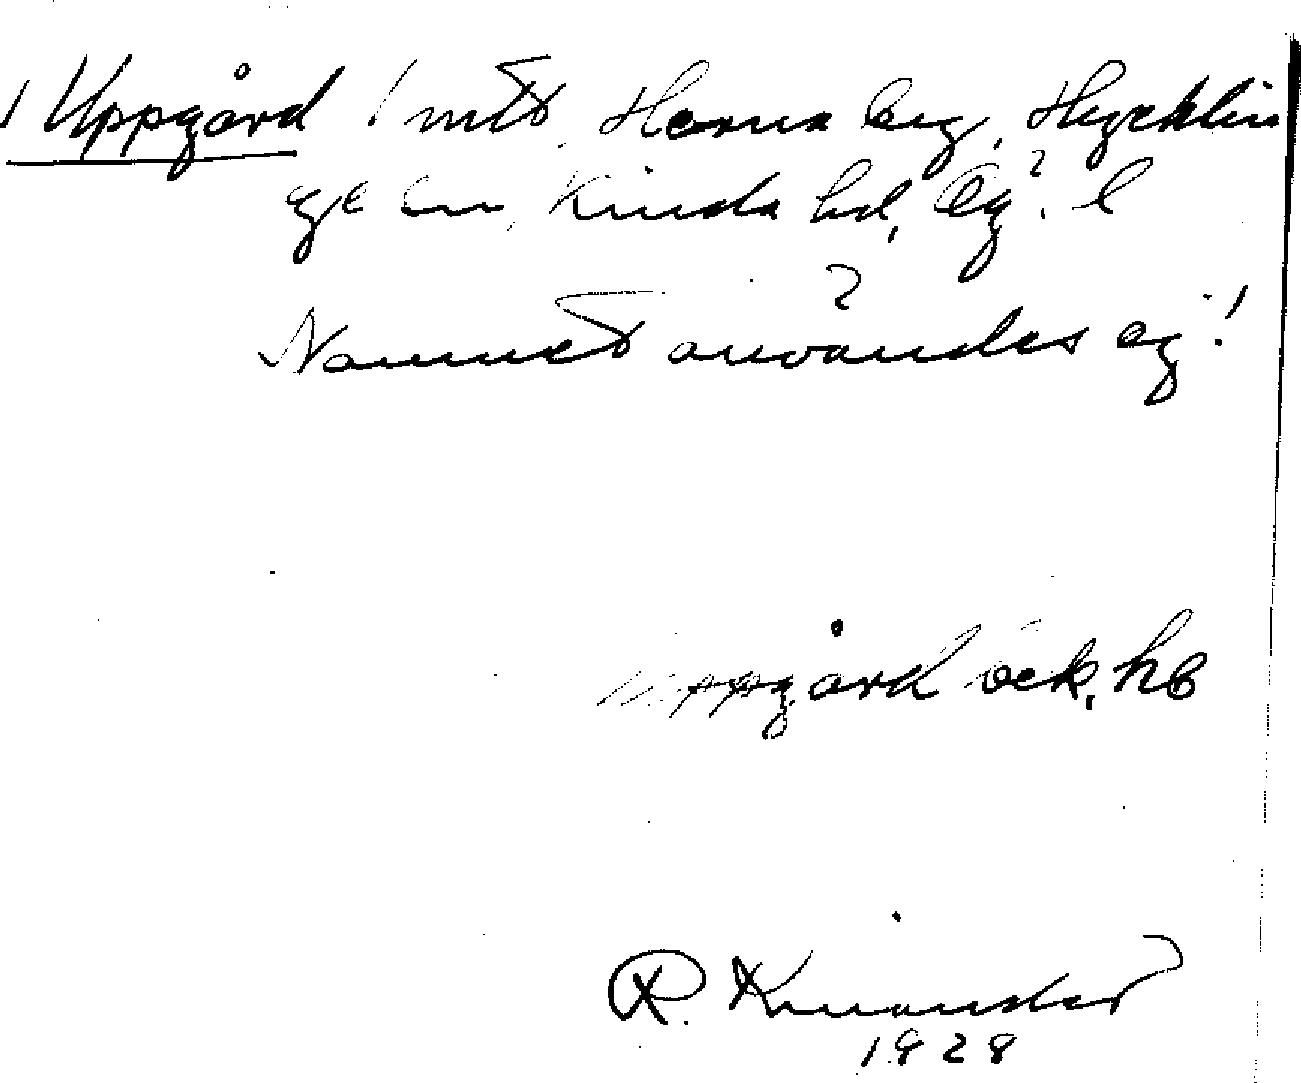 Uppgård 1 mtl, Hanna by, Hycklin
ge sn, Kinda hd, Ög. l
Namnet användes ej!
Uppgård öck. hb
R. Kinander
1928